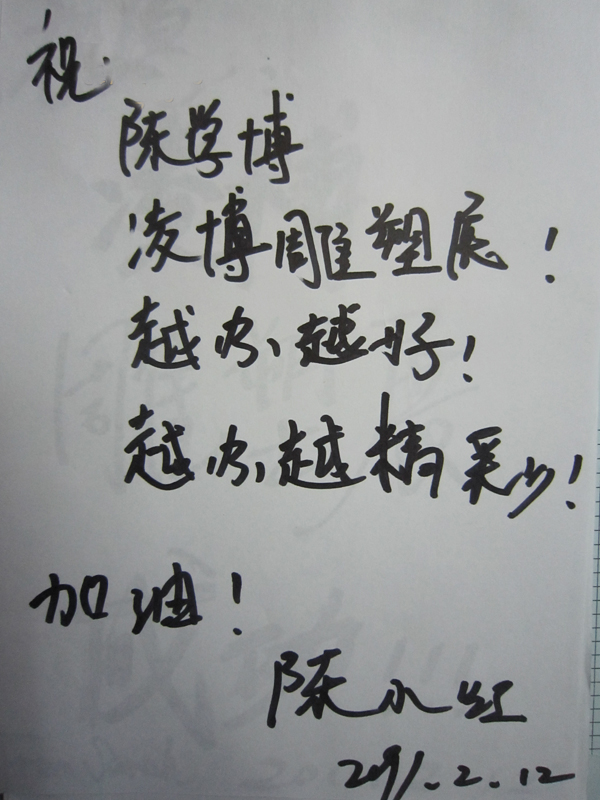 祝
陈学博
凌博雕塑展！
越办越好！
越办越精彩！
加油！
陈小红
2011.2.12